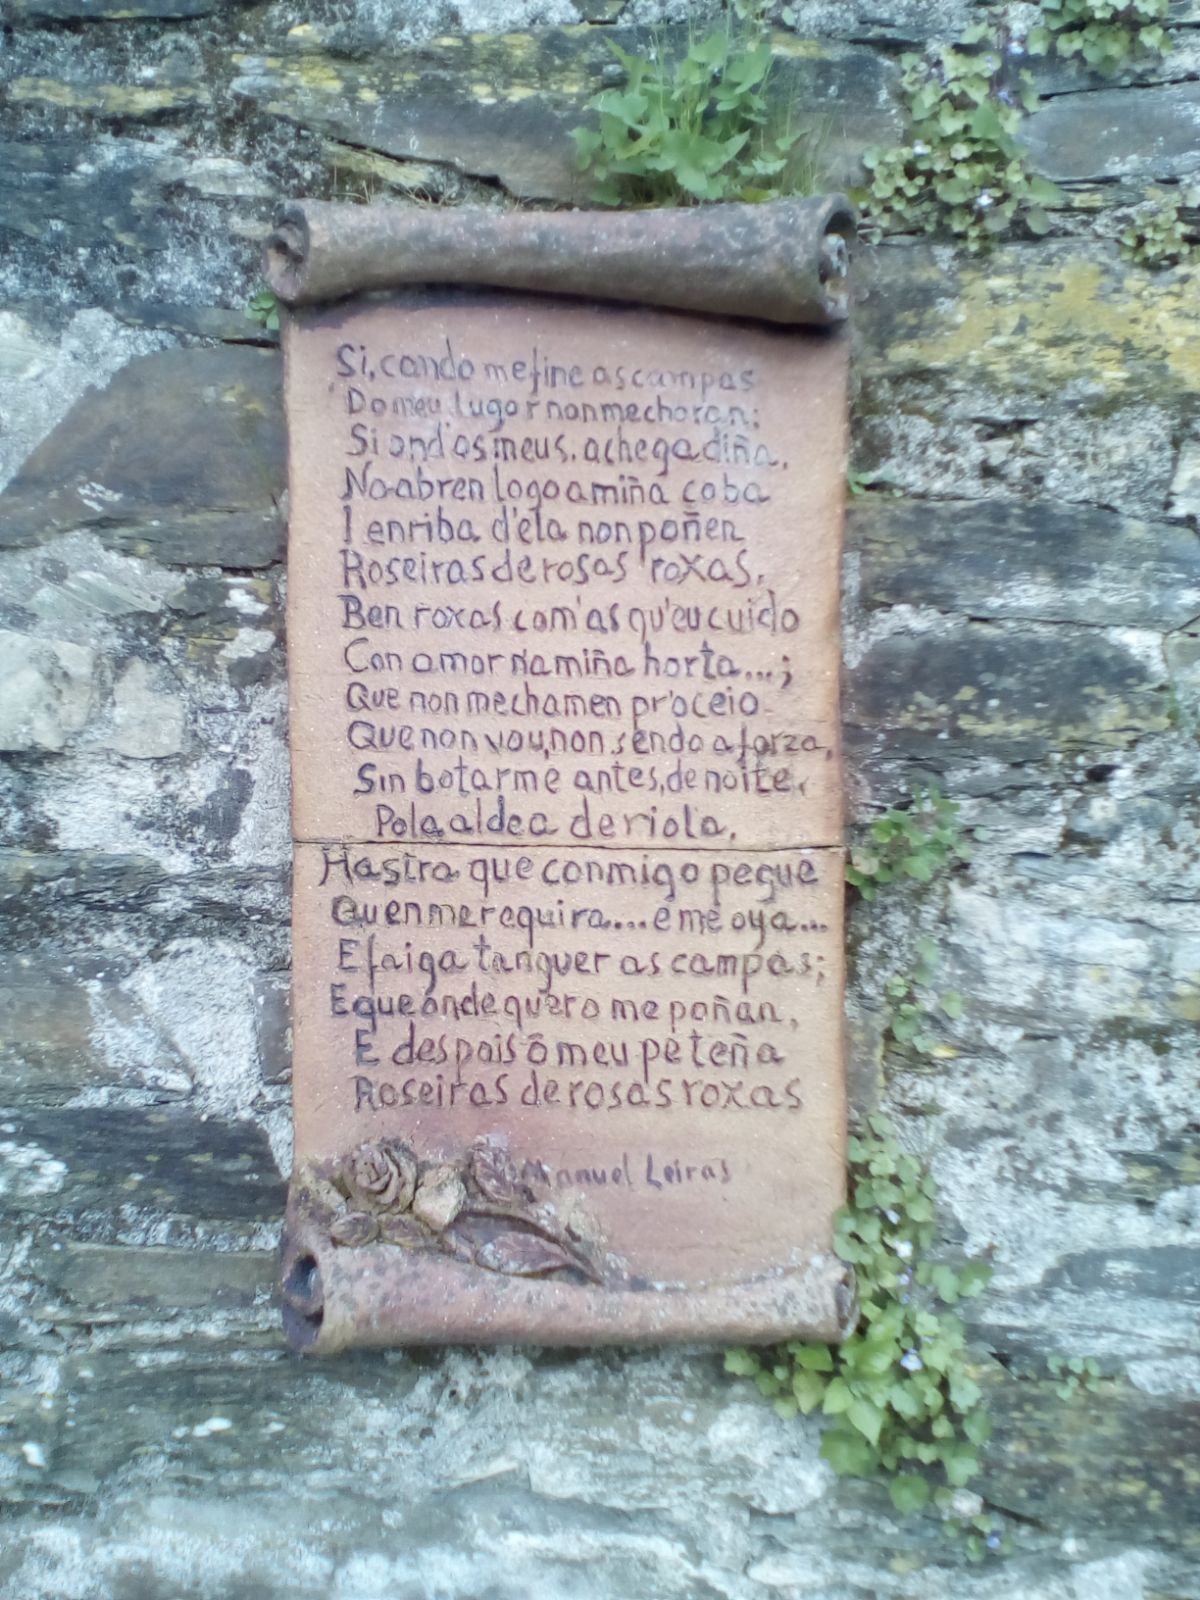 Si, cando me fine as campas
Do meu lugor non me choran;
Si ond'os meus, achega diña,
No abren logo a miña coba
I enriba d'ela non poñen
Roseiras de rosas roxas,
Ben roxas com'as qu'eu cuido
Con amor n'a miña horta...;
Que non me chamen pr'o ceio
Que non vou, non sendo a forza,
Sin botarme antes, de noite,
Pola aldea de riola,
Hastra que conmigo pegue
Quen me requira.... e me oya...
E faiga tanguer as campas;
E que onde quero me poñan,
E despois ô meu pe teña
Roseiras de rosas roxas
Manuel Leiras